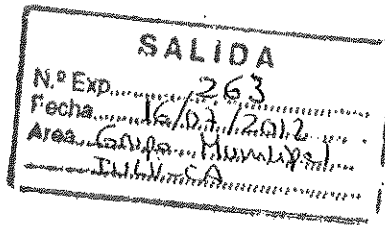 SALIDA
N.º Exp. 263
Fecha 16/07/2012
Area Grupo Municipal
IULV-CA